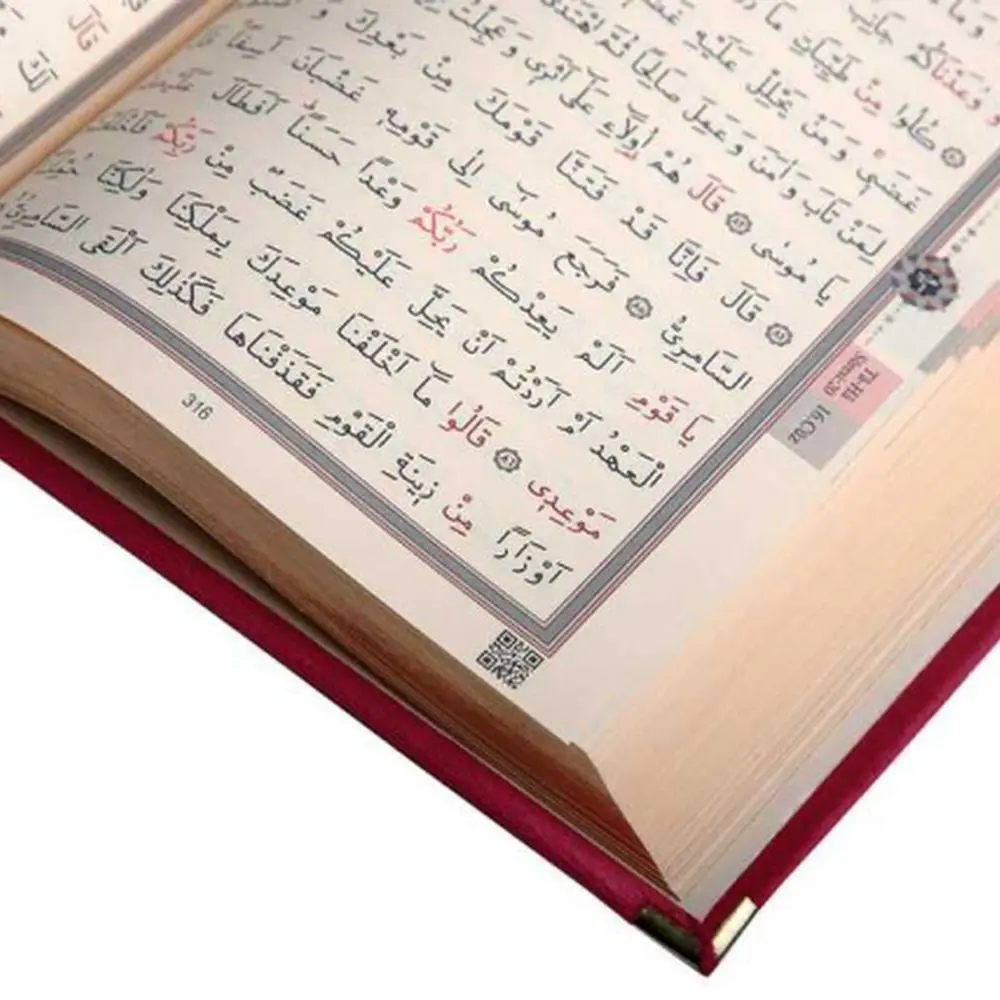 قَالَ
لَكَ
وَمَا
وَعَدْنَاكُمْ جَانِبَ
كُلُوا مِنْ طَيِّبَاتِ مَا
غَضَبٖى وَمَنْ يَحْلِلْ عَلَيْهِ
لِمَنْ تَابَ وَاٰمَنَ وَعَمِلَ صَالِحًا ثُمَّ اهْتَدٰى
يَا مُوسٰى ﴿٨٣﴾ قَالَ هُمْ اُولَٓاءِ عَلٰٓى اَثَرٖى وَعَجِلْتُ
﴿٨٤﴾ قَالَ فَاِنَّا قَدْ فَتَنَّا قَوْمَكَ مِنْ بَعْدِكَ
السَّامِرِىُّ ﴿٨٥﴾ فَرَجَعَ مُوسٰٓى اِلٰى قَوْمِهٖ غَضْبَانَ اَسِفًا
يَا قَوْمِ اَلَمْ يَعِدْكُمْ رَبُّكُمْ وَعْدًا حَسَنًا اَفَطَالَ
الْعَهْدُ اَمْ اَرَدْتُمْ اَنْ يَحِلَّ عَلَيْكُمْ غَضَبٌ مِنْ رَبِّكُمْ
مَوْعِدٖى ﴿٨٦﴾ قَالُوا مَٓا اَخْلَفْنَا مَوْعِدَكَ بِمَلْكِنَا وَلٰكِنَّا
اَوْزَارًا مِنْ زٖينَةِ الْقَوْمِ فَقَذَفْنَاهَا فَكَذٰلِكَ اَلْقَى السَّامِرِىُّ
Tâ-Hâ
Sûresi-20
16.Cüz
316